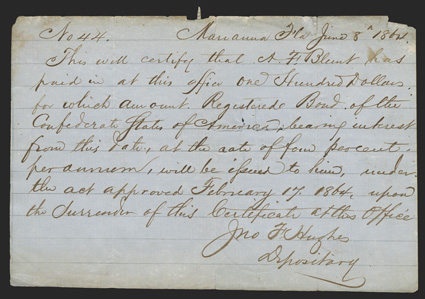 No 44. Marianna Fla June 8th 1864
This will certify that A. F. Blunt, has
paid in at this office one Hundred Dollars
for which amount, Registered Bond, of the
Confederate States of America, bearing interest
from this date, at the rate of four per cent.
per annum, will be issued to him, under
the act approved February 17, 1864, upon
the Surrender of this Certificate at this Office
Jno F Hughes
Depositary